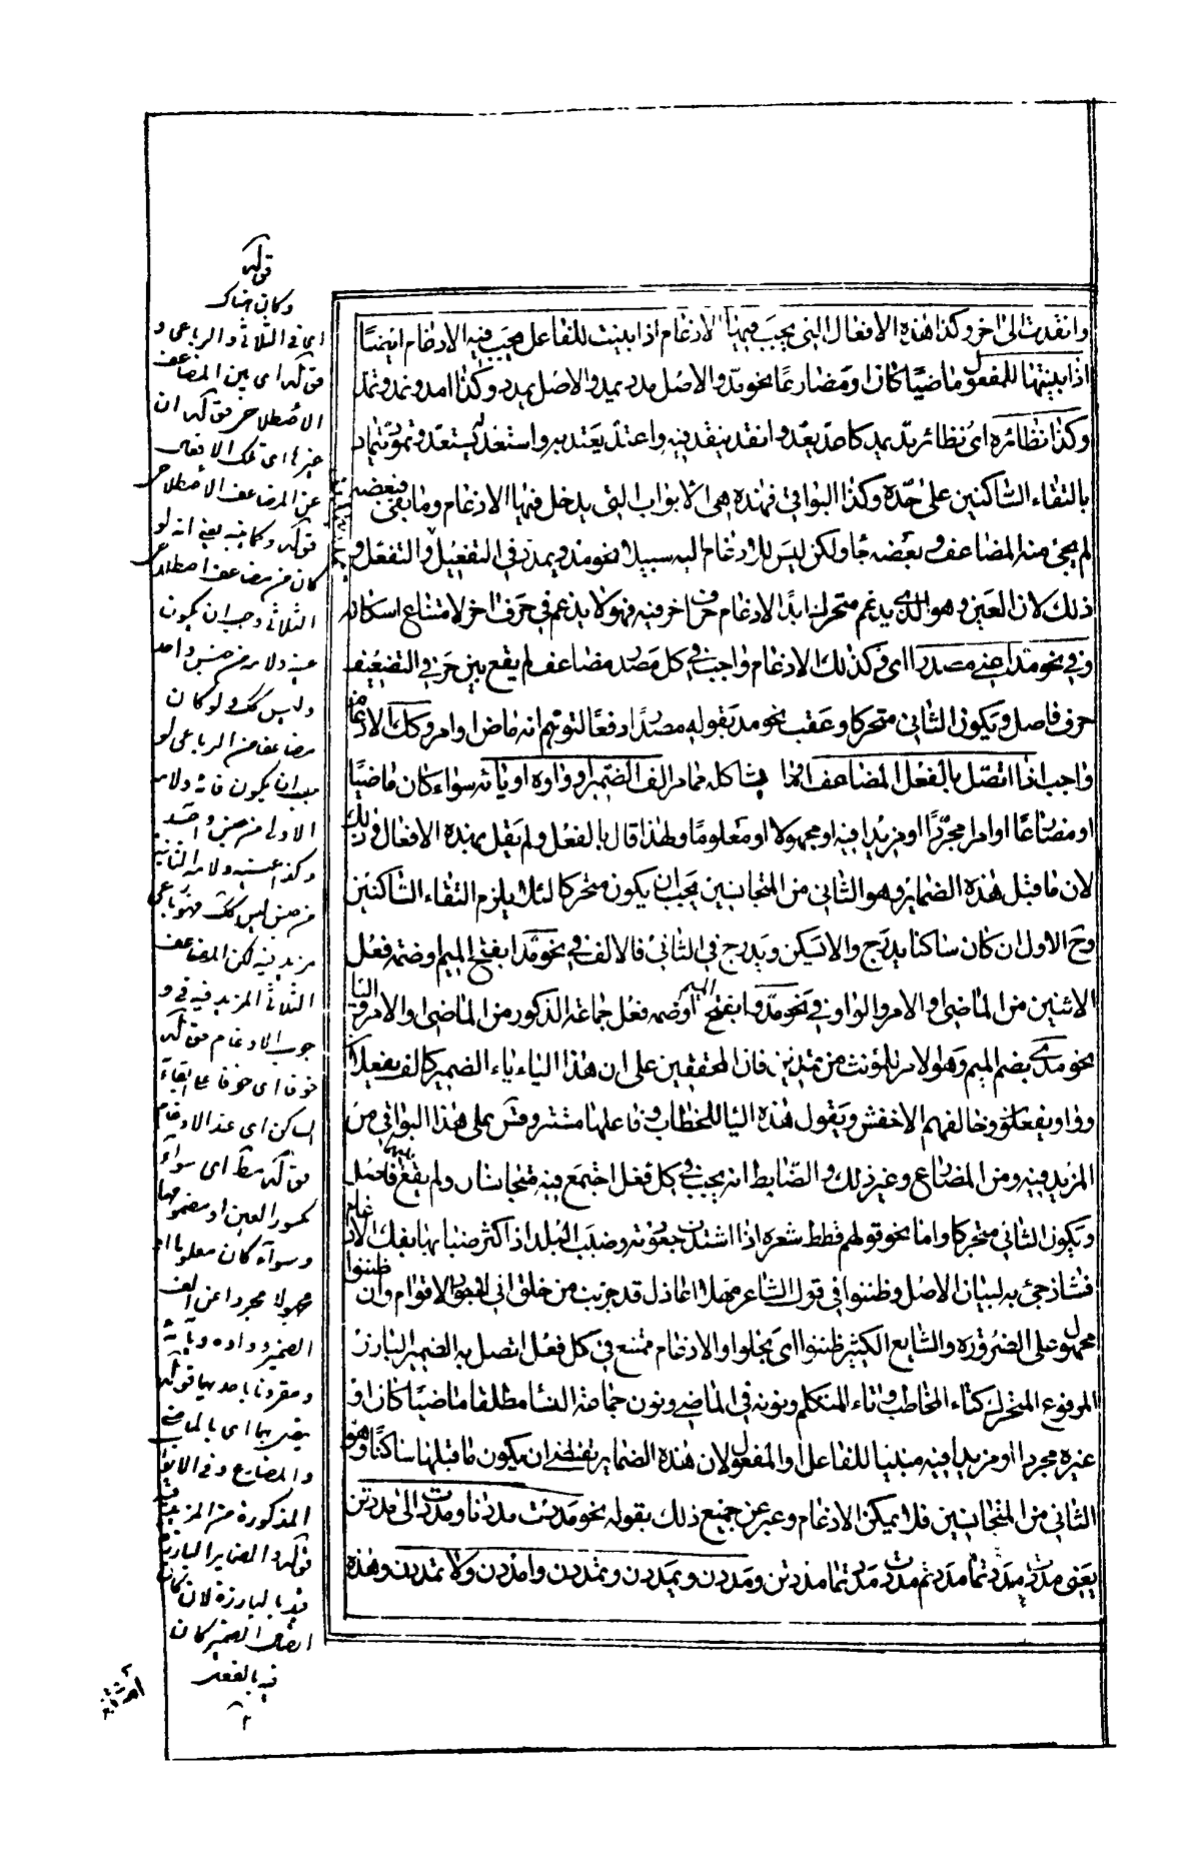 وانقدت الى اخر وكذا هذه الافعال التى يجب فيها الادغام اذا بنيت للفاعل يجب فيه الادغام ايضًا
اذا بنيتها للمفعول ماضيًا كان او مضارعًا نحو مدّ والاصل مدد يمد والاصل يمدد وكذا امد ونمد وتمد
وكذا نظائره اى نظائر مدّ يمد كاعدّ يعدّ وانقد ينقد فيه واعتدّ يعتد به واستعدّ يستعدّ وتمودّ يتماد
بالتقاء الساكنين على حدّه وكذا البواقى فهذه هى الابواب التى يدخل فيها الادغام وما بقى فبعضه
لم يجئ منه المضاعف وبعضه جاء ولكن ليس للادغام اليه سبيل نحو مدّد يمدّد فى التفعيل والتفعّل و
ذلك لان العين وهو الذى يدغم متحرك ابدًا لادغام حرف اخر فيه فهو لا يدغم فى حرف اخر لامتناع اسكانه
وفى نحو مدّ اعنى مصدرا اى وكذلك الادغام واجب فى كل مصدر مضاعف لم يقع بين حرفى التضعيف
حرف فاصل ويكون الثانى متحركا وعقب نحو مد بقوله مصدرًا دفعًا لتوهم انه ماض او امر وكذلك الادغام
واجب اذا اتصل بالفعل المضاعف الف الضمير او واوه او يائه سواء كان ماضيًا
او مضارعًا او امرا مجرّدًا او مزيدا فيه او مجهولا او معلومًا ولهذا قال بالفعل ولم يقل بهذه الافعال وذلك
لان ما قبل هذه الضمائر وهو الثانى من المتجانسين يجب ان يكون متحركا لئلا يلزم التقاء الساكنين
وح الاول ان كان ساكنا يدرج والا يسكن ويدرج فى الثانى فالالف فى نحو مدّا بفتح الميم او ضمه فعل
الاثنين من الماضى والامر والواو فى نحو مدّوا بفتح الميم او ضمه فعل جماعة الذكور من الماضى والامر واليا
نحو مدّى بضم الميم وهو الامر للمؤنث من تمدين فان المحققين على ان هذا الياء ياء الضمير كالف يفعلان
وواو يفعلون وخالفهم الاخفش ويقول هذه اليا للخطاب وفاعلها مستتر وقس على هذا البواقى من
المزيد فيه ومن المضارع وغير ذلك والضابط انه يجب فى كل فعل اجتمع فيه متجانسان ولم يقع بينهما فاصل
ويكون الثانى متحركا واما نحو قولهم قطط شعره اذا اشتدت جعودته وضبب البلد اذا كثر ضبابها بفك الادغام
فشاذ جئ به لبيان الاصل وظننوا فى قول الشاعر مهلا اعاذل قد جربت من خلقى انى اجود لاقوام وان ظننوا
محمول على الضرورة والشايع الكثير ظننوا اى بخلوا والادغام ممتنع فى كل فعل اتصل به الضمير البارز
المرفوع المتحرك كتاء المخاطب وتاء المتكلم ونونه فى الماضى ونون جماعة النسا مطلقا ماضيًا كان او
غيره مجردا او مزيدا فيه مبنيا للفاعل او المفعول لان هذه الضمائر تقتضى ان يكون ما قبلها ساكنًا وهو
الثانى من المتجانسين فلا يمكن الادغام وعبر عن جميع ذلك بقوله نحو مددت مددنا ومددت الى مددتن
يعنى مددت مددتما مددتم مددت مددتما مددتن ومددن ويمددن وتمددن وامددن ولا تمددن وهذه
قوله
وكان هناك
اى فى الثلاثى والرباعى و
قوله اى بين المضاعف
الاصطلاحى قوله ان
غيرها اى تلك الافعال
عن المضاعف الاصطلاحى
قوله وكما ينبه يعنى انه لو
كان من مضاعف اصطلاحى
الثلاثى وجب ان يكون
عينه ولامه من جنس واحد
وليس كك ولو كان
مضاعف من الرباعى لو
جب ان يكون فائه ولامه
الاولى من جنس واحد
وكذا عينه ولامه الثانية
من جنس ليس كك فهو رباعى
مزيد فيه لكن المضاعف
الثلاثى المزيد فيه فى و
جوب الادغام قوله
خوفا اى خوفا على ابقاء
الساكن اى عند الادغام
قوله مطلقا اى سواء
مكسور العين او مضمومها
وسواء كان معلوما او
مجهولا مجردا عن الف
الضمير وواوه ويائه
ومقرونا باحديها قوله
يقربهما اى بالماضى
والمضارع وفى الابواب
المذكورة من المزيد فيه
قوله والضماير البارزة
قيد بالبارزة لان كان
اتصاف الضمير كان
فيه بالفعل